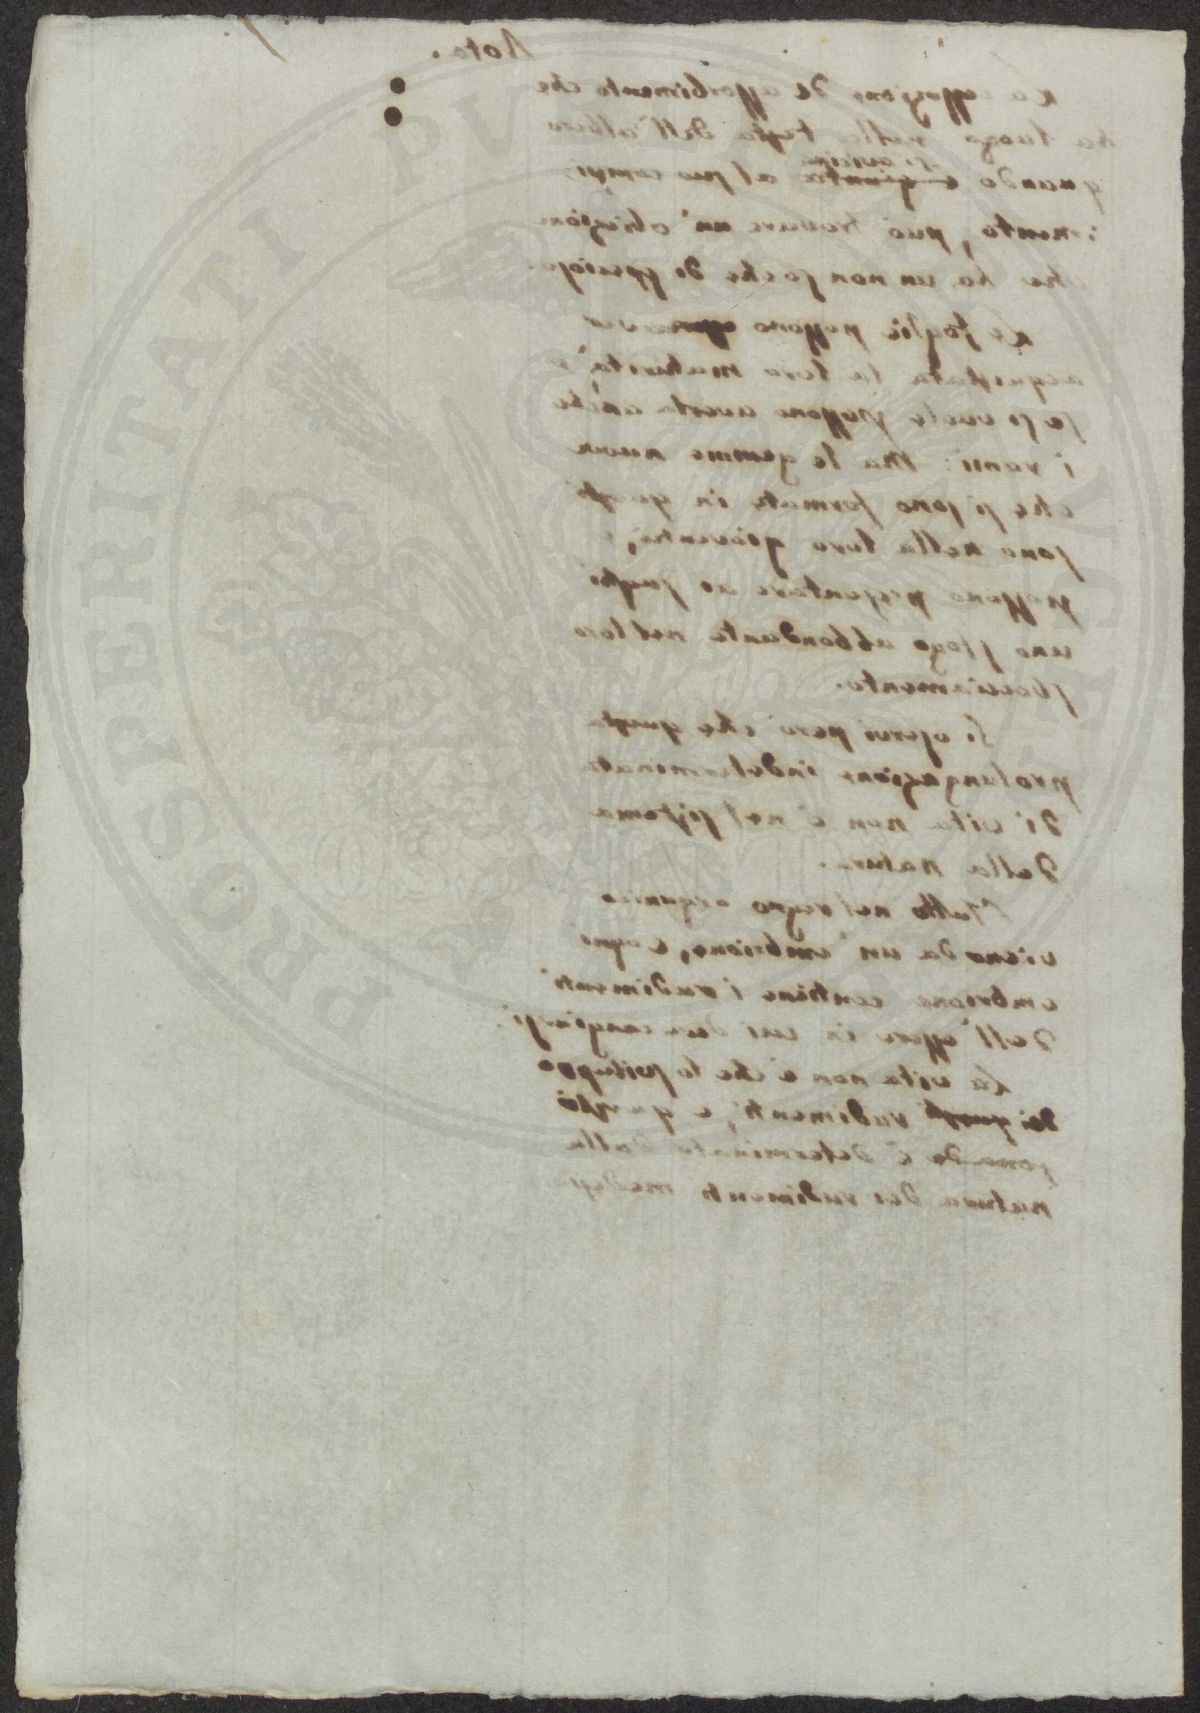 Nota.
La cessazione di assorbimento che
ha luogo nella testa dell'albero
si avvicina
quando è giunta al suo compi:
:mento, può trovare un'obiezione
che ha un non so che di specioso.
Le foglie possono aver
acquistata la loro maturità, e
se si vuole possono averla anche
i rami: Ma le gemme nuove
che si sono formate in questi
sono nella loro gioventù, e
possono presentare ai sughi
uno sfogo abbondante nel loro
sbocciamento.
Si osservi però che questa
prolungazione indeterminata
di vita non è nel sistema
della natura.
Tutto nel regno organico
viene da un embrione, e ogni
embrione contiene i rudimenti
dell'essere in cui deve cangiarsi.
La vita non è che lo sviluppo
dei questi rudimenti, e questo
è determinato dalla
natura dei rudimenti medesimi
PROSPERITATI PVBLICAE